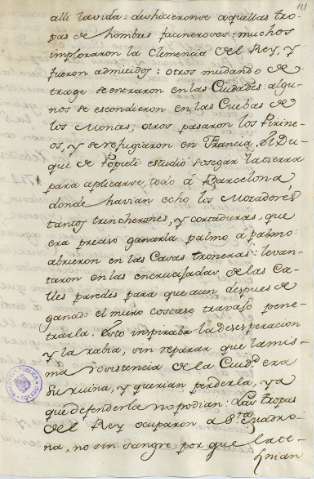 alli la vida: deshicieronse aquellas tro-
pas de hombres facinerosos: muchos
imploraron la Clemencia del Rey, y
fueron admitidos: otros mudando de
trage se entraron en las Ciudades algu-
nos se escondieron en las Cuebas de
los Montes, otros pasaron los Pirine-
os, y se refugiaron en Francia. El Du-
que de Populi estudió sosegar la tierra
para aplicarse todo á Barcelona
donde havian echo los Moradores
tantos trincherones, y cortaduras, que
era preciso ganarla palmo á palmo:
abrieron en las Casas troneras: levan-
taron en las encrucijadas de las Ca-
lles paredes para que aun despues de
ganado el muro costase travajo pene-
trarla. Esto inspiraba la desesperacion
y la rabia, sin reparar que la mis-
ma resistencia de la Ciudad era
su ruina, y querian perderla, ya
que defenderla no podian: Las tropas
del Rey ocuparon a Sta. Madro-
na, no sin sangre por que la ce-